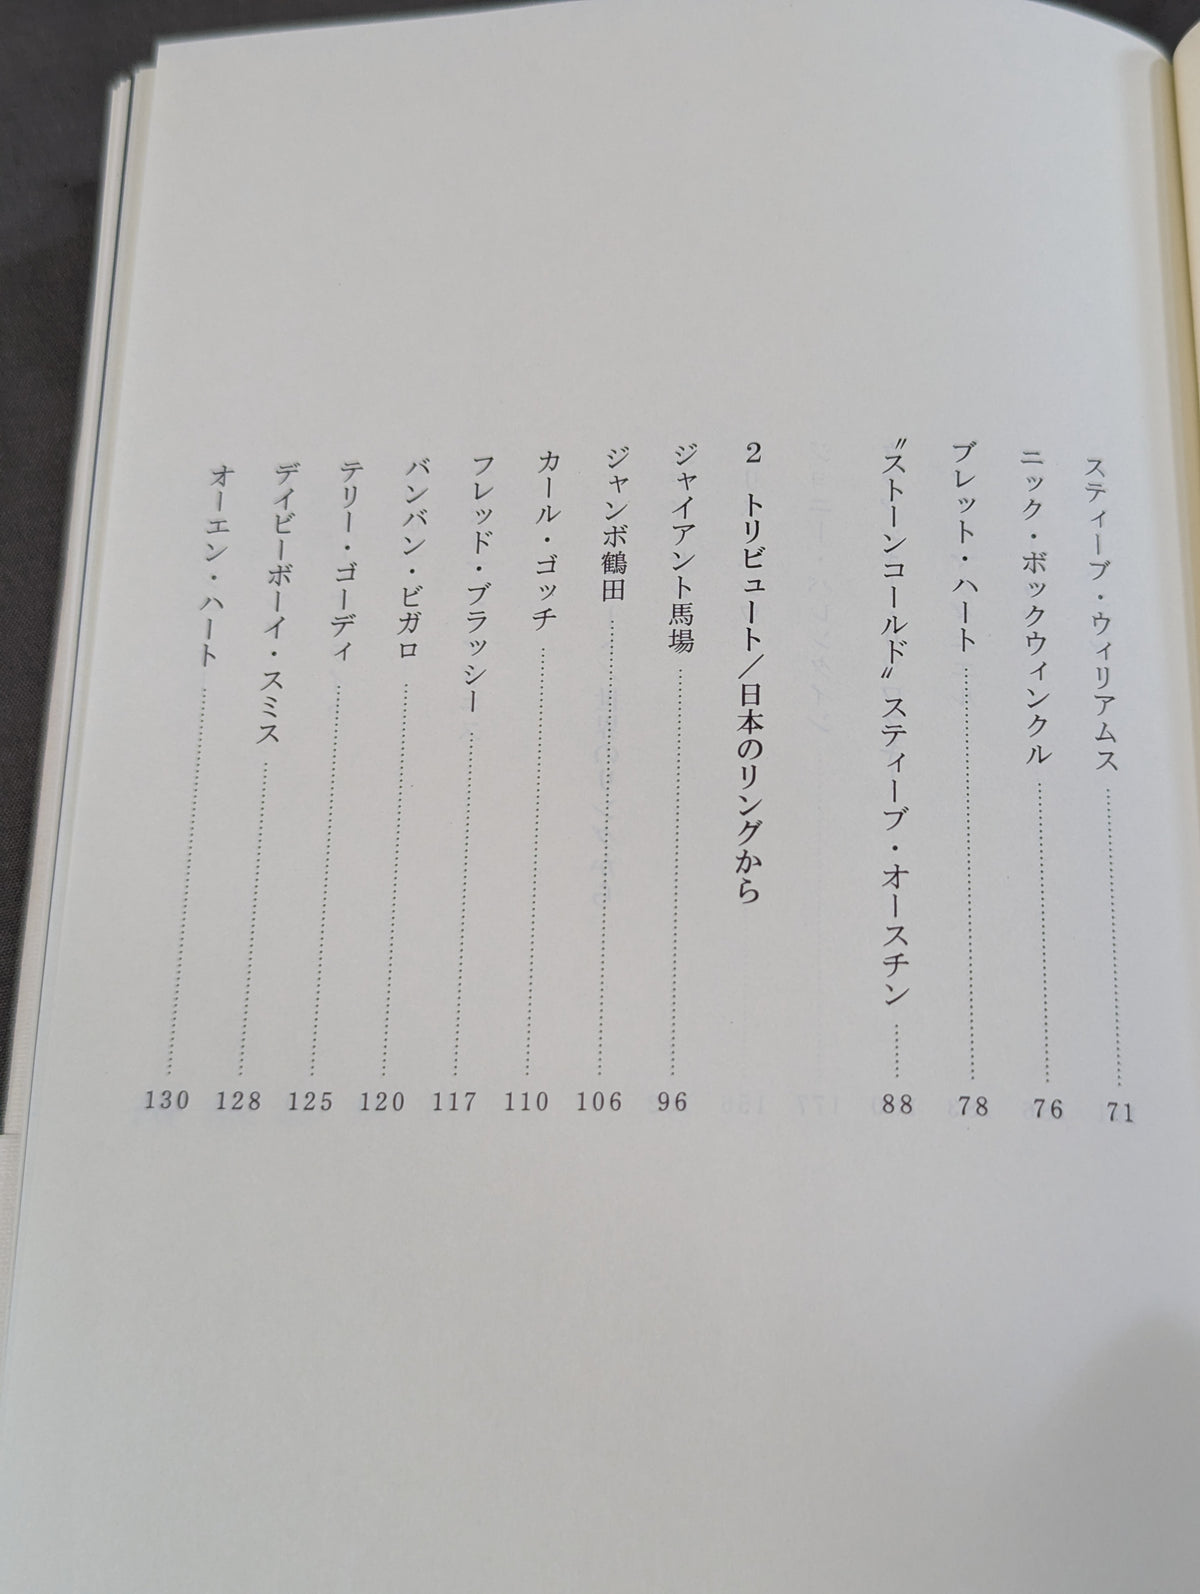 スティーブ・ウィリアムス……71
ニック・ボックウィンクル……76
ブレット・ハート……78
〝ストーンコールド〟スティーブ・オースチン……88
2 トリビュート／日本のリングから
ジャイアント馬場……96
ジャンボ鶴田……106
カール・ゴッチ……110
フレッド・ブラッシー……117
バンバン・ビガロ……120
テリー・ゴーディ……125
デイビーボーイ・スミス……128
オーエン・ハート……130